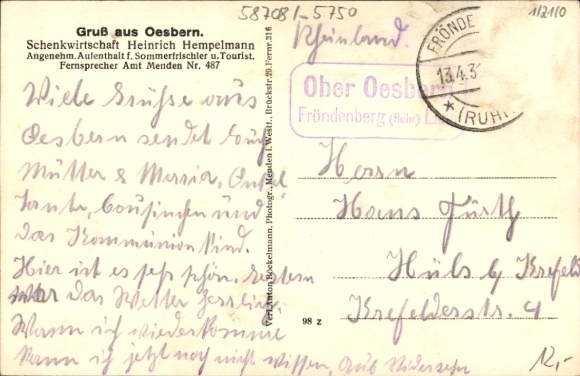 58708/-5750
1/210
Gruß aus Oesbern.
Schenkwirtschaft Heinrich Hempelmann
Angenehm. Aufenthalt f. Sommerfrischler u. Tourist.
Fernsprecher Amt Menden Nr. 487
Viele Grüße aus
Oesbern sendet Euch
Mutter & Maria, Onkel
Tante, Cousinchen und
das Kommunion Kind.
Hier ist es sehr schön. Gestern
war das Wetter herrlich
Wann ich wiederkomme
kann ich jetzt noch nicht wissen, Auf Wiedersehn
Verl. Anton Röckelmann, Photogr., Menden i. Westf., Brückstr. 29, Fernr. 316
Rheinland.
Ober Oesbern
Fröndenberg (Ruhr) L
FRÖNDE
13.4.3
(RUHR
Herrn
Hans Fürth
Hüls b/ Krefeld
Krefelderstr. 4
98 z
12,-